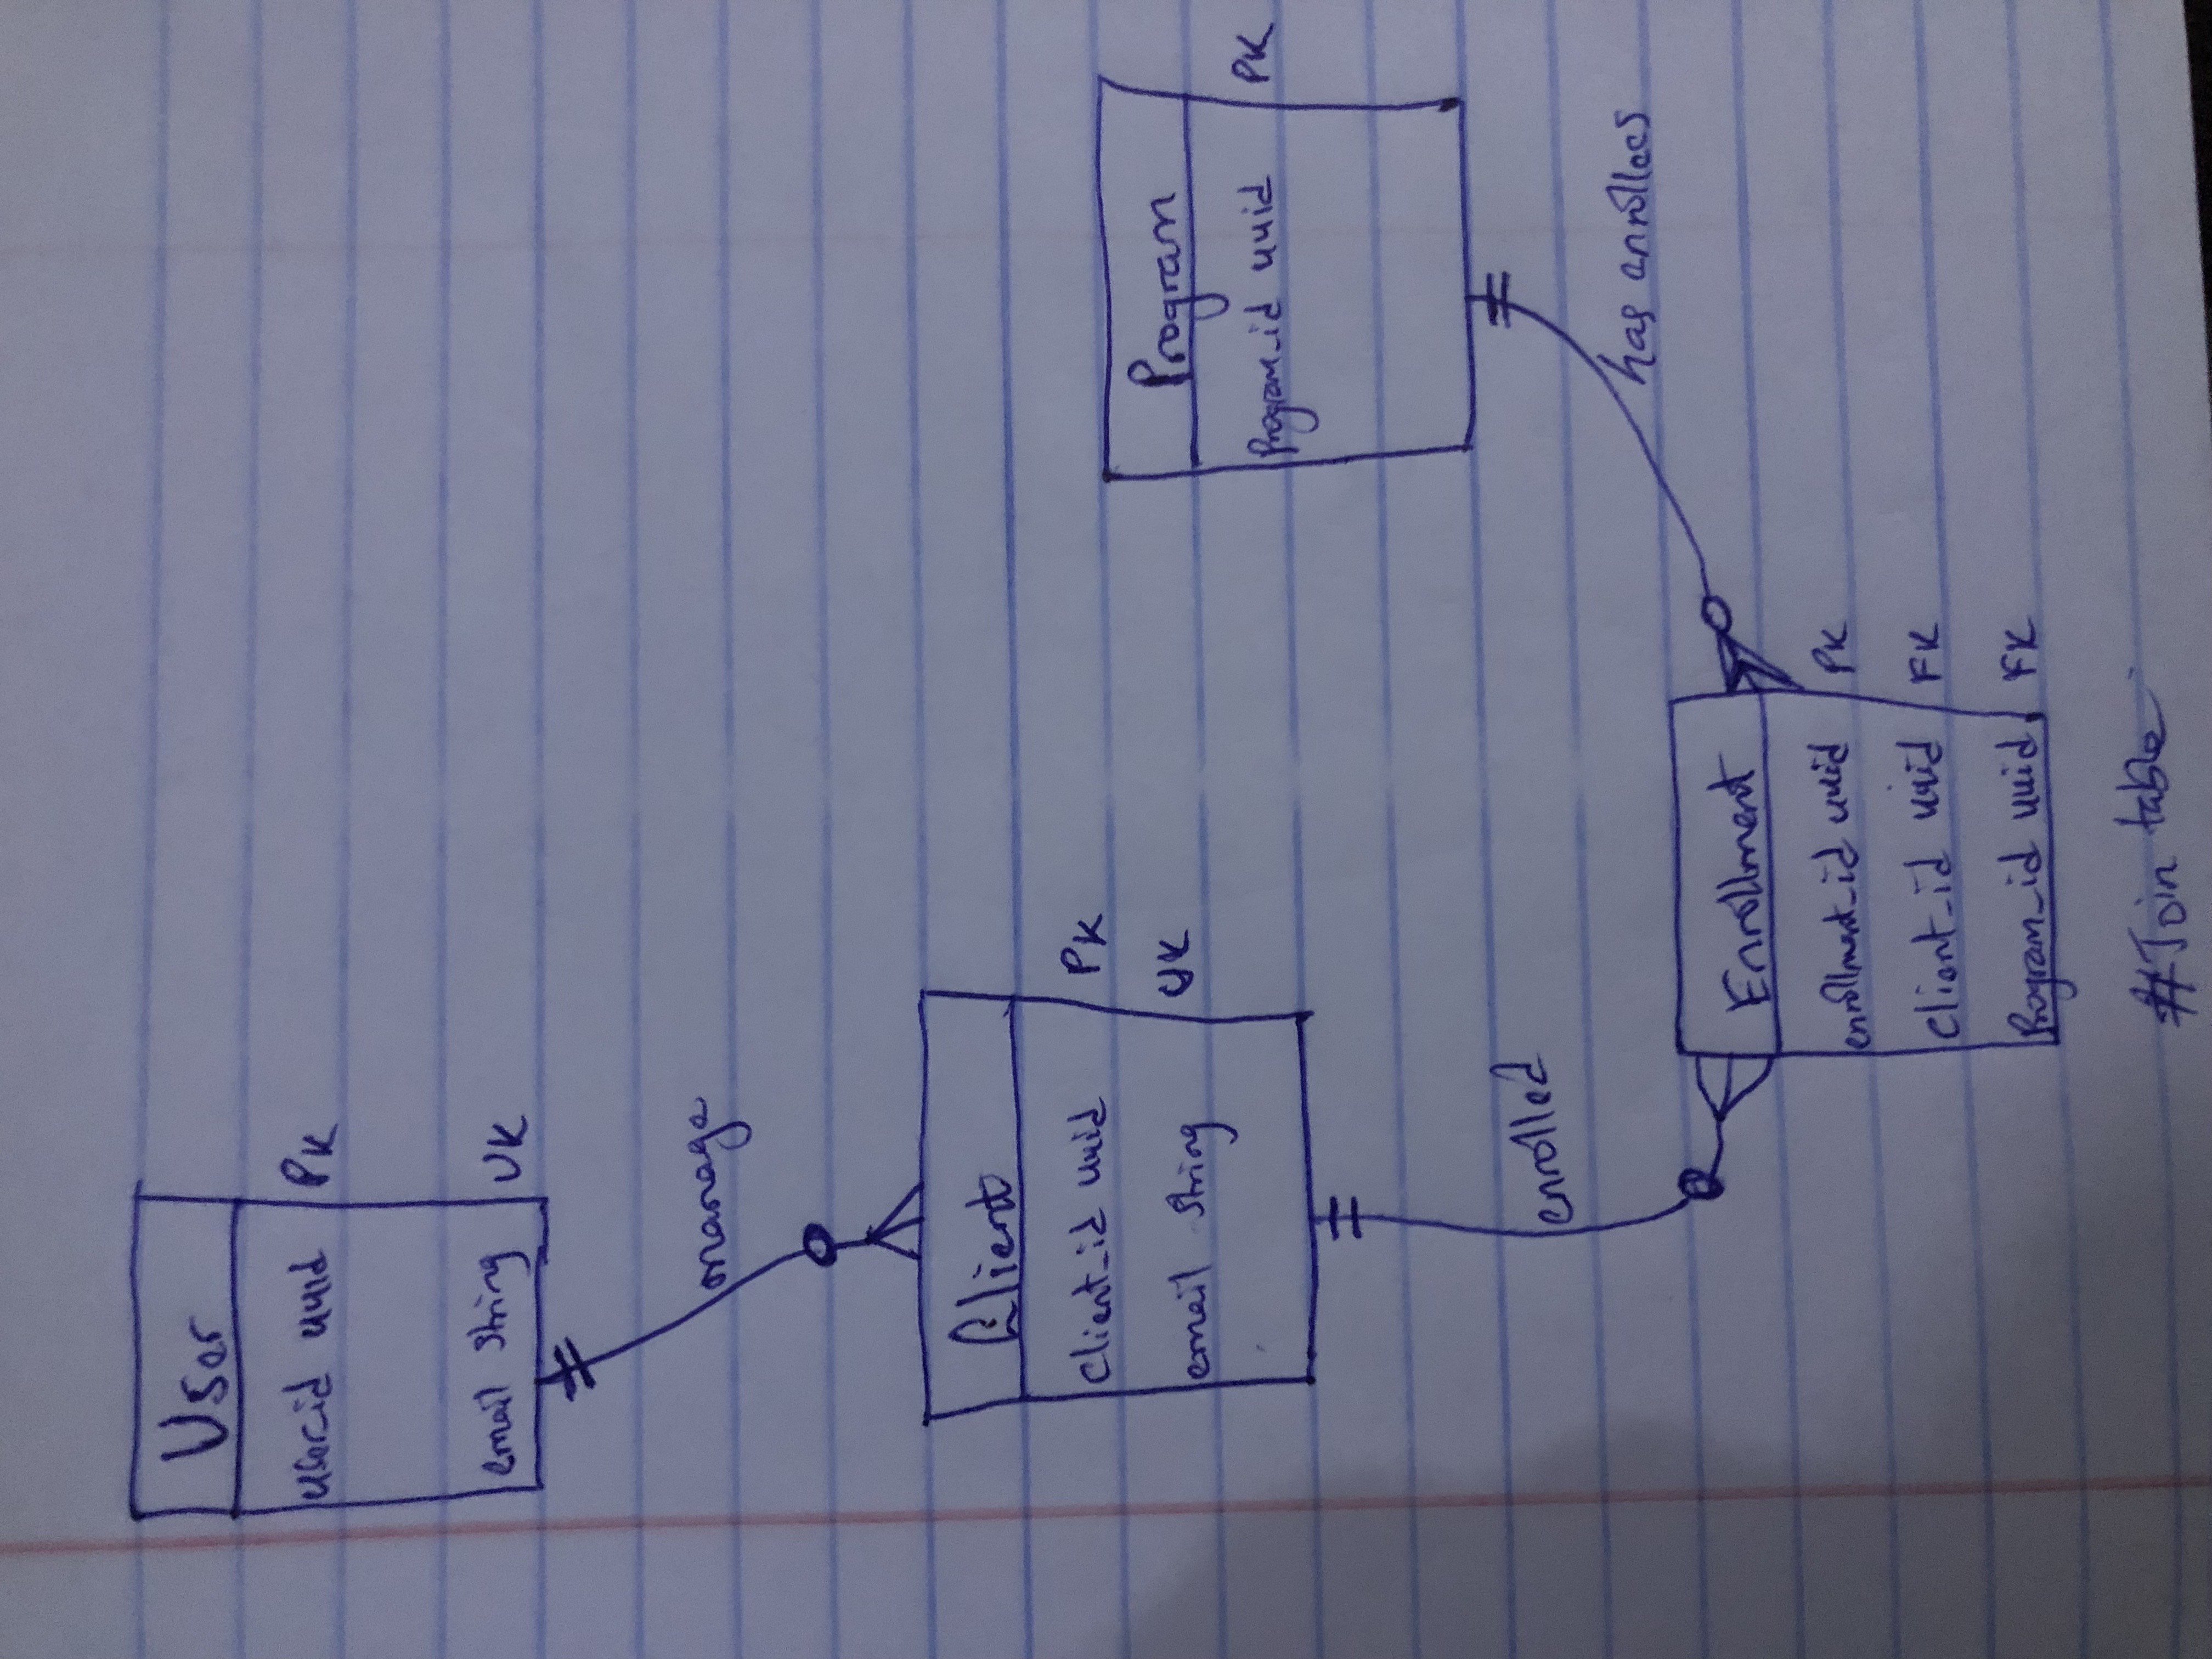 User
user_id uuid PK
email string UK
manage
Client
Client_id uuid PK
email string UK
Program
Program_id uuid PK
enrolled
has enrollees
Enrollment
enrollment_id uuid PK
Client_id uuid FK
Program_id uuid FK
#Join table